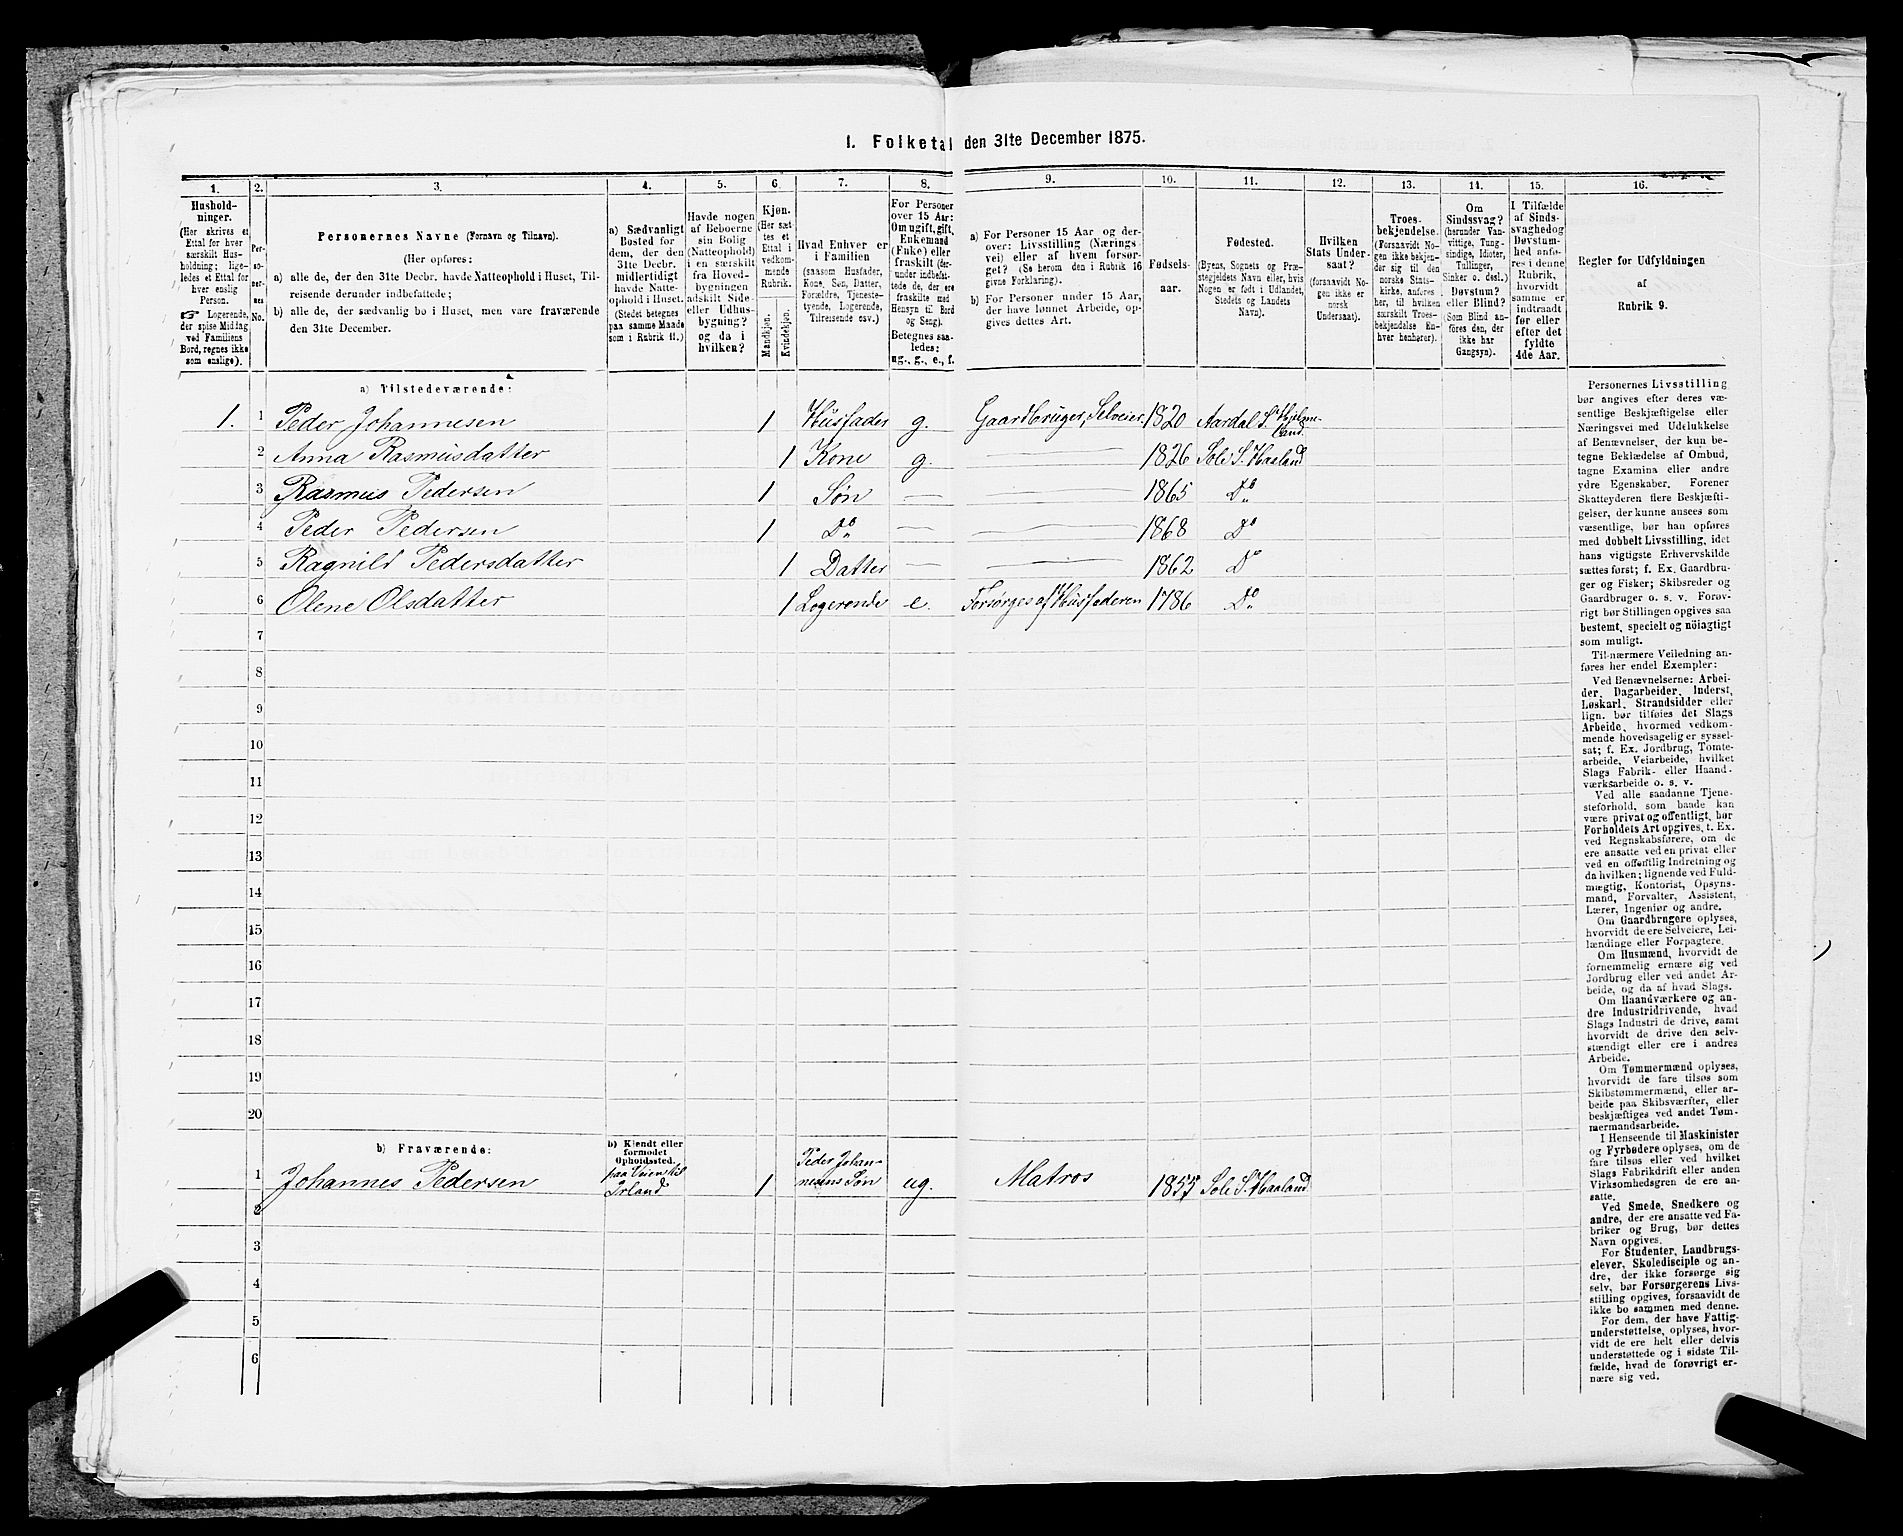 1. Folketal den 31te December 1875.
1. 2. 3. 4. 5. 6. 7. 8. 9. 10. 11. 12. 13. 14. 15. 16.
Hushold-
ninger.
(Her skrives et
Ettal for hver
særskilt Hus-
holdning; lige-
ledes et Ettal for
hver enslig
Person.
☞ Logerende,
der spise Middag
ved Familiens
Bord, regnes ikke
som enslige).
Per-
so-
ner-
nes
No.
Personernes Navne (Fornavn og Tilnavn).
(Her opføres:
a) alle de, der den 31te Decbr. havde Natteophold i Huset, Til-
reisende derunder indbefattede;
b) alle de, der sædvanlig bo i Huset, men vare fraværende
den 31te December.
a) Sædvanligt
Bosted for
dem, der den
31te Decbr.
midlertidigt
havde Natte-
ophold i Huset.
(Stedet betegnes
paa samme Maade
som i Rubrik 11.)
Havde nogen
af Beboerne
sin Bolig
(Natteophold)
i en særskilt
fra Hoved-
bygningen
adskilt Side-
eller Udhus-
bygning?
og da i
hvilken?
Kjøn.
(Her sæt-
tes et
Ettal i
vedkom-
mende
Rubrik.
Mandkjøn.
Kvindekjøn.
Hvad Enhver er
i Familien
(saasom Husfader,
Kone, Søn, Datter,
Forældre, Tjeneste-
tyende, Logerende,
Tilreisende osv.)
For Personer
over 15 Aar:
Om ugift, gift,
Enkemand
(Enke) eller
fraskilt (der-
under indbefat-
tede de, der ere
fraskilte med
Hensyn til Bord
og Seng).
Betegnes saa-
ledes:
ug., g., e., f.
a) For Personer 15 Aar og der-
over: Livsstilling (Nærings-
vei) eller af hvem forsør-
get? (Se herom den i Rubrik 16
givne Forklaring).
b) For Personer under 15 Aar,
der have lønnet Arbeide, op-
gives dettes Art.
Fødsels-
aar.
Fødested.
(Byens, Sognets og Præ-
stegjeldets Navn eller, hvis
Nogen er født i Udlandet,
Stedets og Landets
Navn).
Hvilken
Stats Under-
saat?
(forsaavidt No-
gen ikke er
norsk
Undersaat).
Troes-
bekjendelse.
(Forsaavidt No-
gen ikke bekjen-
der sig til den
norske Stats-
kirke, anføres
her, til hvilken
særskilt Troes-
bekjendelse En-
hver henhører).
Om
Sindssvag?
(herunder Van-
vittige, Tung-
sindige, Idioter,
Tullinger,
Sinker o. desl.)
Døvstum?
eller Blind?
(Som Blind an-
føres den, der
ikke har
Gangsyn).
I Tilfælde
af Sinds-
svaghed og
Døvstum-
hed anfø-
res i denne
Rubrik,
hvorvidt
samme er
indtraadt
før eller
efter det
fyldte
4de Aar.
Regler for Udfyldningen
af
Rubrik 9.
a) Tilstedeværende:
1. 1 Peder Johannesen 1 Husfader g. Gaardbruger, Selveier. 1820 Aardal S. Hjelme-
land.
2 Anna Rasmusdatter 1 Kone g. 1826 Sole S. Haaland
3 Rasmus Pedersen 1 Søn — — 1865 Do
4 Peder Pedersen 1 Do — — 1868 Do
5 Ragnild Pedersdatter 1 Datter — — 1862 Do
6 Olene Olsdatter 1 Logerende e. Forsørges af Husfaderen 1786 Do
7
8
9
10
11
12
13
14
15
16
17
18
19
20
b) Fraværende:
b) Kjendt eller
formodet
Opholdssted.
1 Johannes Pedersen paa Veien til
Irland 1 Peder Johan-
nesens Søn ug. Matros 1855 Sole S. Haaland
2
3
4
5
6
Personernes Livsstilling
bør angives efter deres væ-
sentlige Beskjæftigelse eller
Næringsvei med Udelukkelse
af Benævnelser, der kun be-
tegne Beklædelse af Ombud,
tagne Examina eller andre
ydre Egenskaber. Forener
Skatteyderen flere Beskjæfti-
gelser, der kunne ansees som
væsentlige, bør han opføres
med dobbelt Livsstilling, idet
hans vigtigste Erhvervskilde
sættes først; f. Ex. Gaardbru-
ger og Fisker; Skibsreder og
Gaardbruger o. s. v. Forøv-
rigt bør Stillingen opgives saa
bestemt, specielt og nöiagtigt
som muligt.
Til nærmere Veiledning an-
føres her endel Exempler:
Ved Benævnelserne: Arbei-
der, Dagarbeider, Inderst,
Løskarl, Strandsidder eller
lign. bør tilføies det Slags
Arbeide, hvormed vedkom-
mende hovedsagelig er syssel-
sat; f. Ex. Jordbrug, Tomte-
arbeide, Veiarbeide, hvilket
Slags Fabrik- eller Haand-
værksarbeide o. s. v.
Ved alle saadanne Tjene-
steforhold, som baade kan
være privat og offentligt, bør
Forholdets Art opgives, t. Ex.
ved Regnskabsførere, om de
ere ansatte ved en privat eller
ved en offentlig Indretning og
da hvilken; lignende ved Fuld-
mægtig, Kontorist, Opsyns-
mand, Forvalter, Assistent,
Lærer, Ingeniør og andre.
Om Gaardbrugere oplyses,
hvorvidt de ere Selveiere, Lei-
lændinge eller Forpagtere.
Om Husmænd, hvorvidt de
fornemmelig ernære sig ved
Jordbrug eller ved andet Ar-
beide, og da af hvad Slags.
Om Haandværkere og an-
dre Industridrivende, hvad
Slags Industri de drive, samt
hvorvidt de drive den selv-
stændigt eller ere i andres
Arbeide.
Om Tømmermænd oplyses,
hvorvidt de fare tilsøs som
Skibstømmermænd, eller ar-
beide paa Skibsværfter, eller
beskjæftiges ved andet Tøm-
mermandsarbeide.
I Henseende til Maskinister
og Fyrbødere oplyses, om de
fare tilsøs eller ved hvilket
Slags Fabrikdrift eller anden
Virksomhedsgren de ere an-
satte.
Ved Smede, Snedkere og
andre, der ere ansatte ved Fa-
briker og Brug, bør dettes
Navn opgives.
For Studenter, Landbrugs-
elever, Skoledisciple og an-
dre, der ikke forsørge sig
selv, bør Forsørgerens Livs-
stilling opgives, forsaavidt de
ikke bo sammen med denne.
For dem, der have Fattig-
understøttelse, oplyses, hvor-
vidt de ere helt eller delvis
understøttede og i sidste Til-
fælde, hvad de forøvrigt er-
nære sig ved.